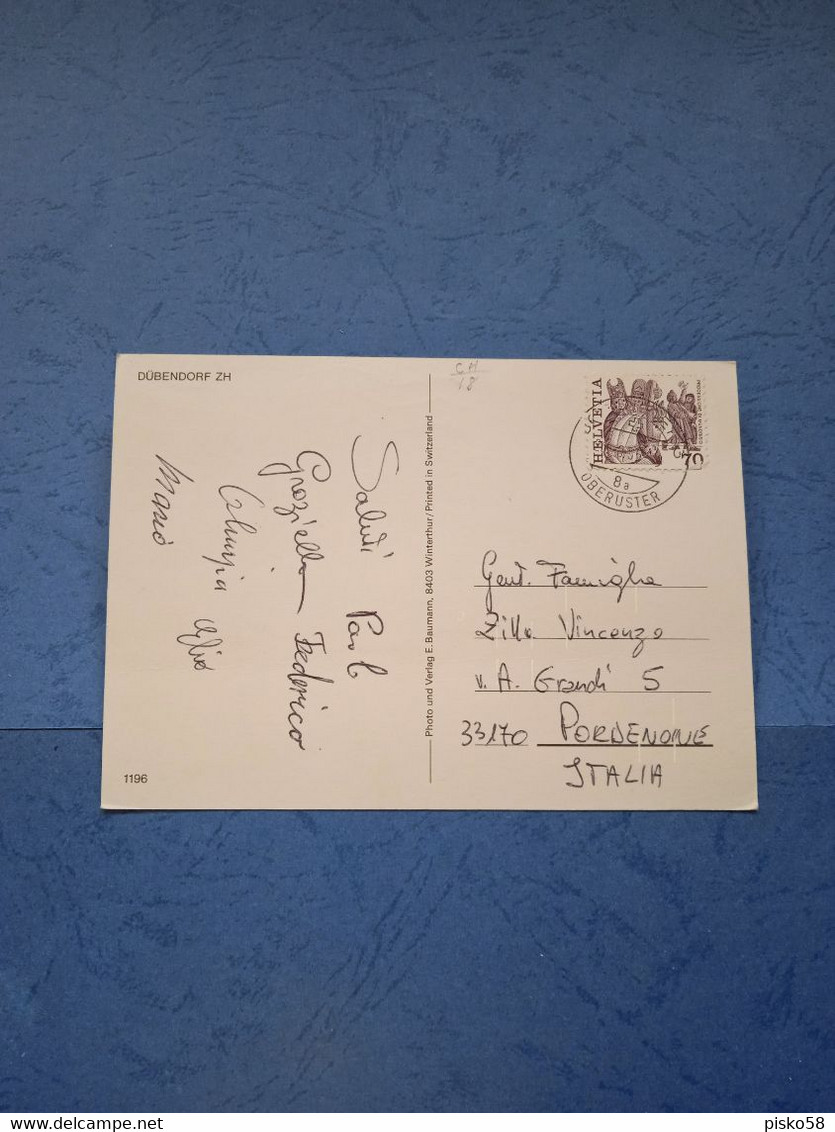 DÜBENDORF ZH
CH
18
HELVETIA
70
8a
OBERUSTER
Saluti Paolo
Graziella Federico
Mario
Photo und Verlag E. Baumann, 8403 Winterthur/Printed in Switzerland
Gent. Famiglia
Zillo Vincenzo
v. A. Grandi 5
33170 PORDENONE
ITALIA
1196
delcampe.net
pisko58